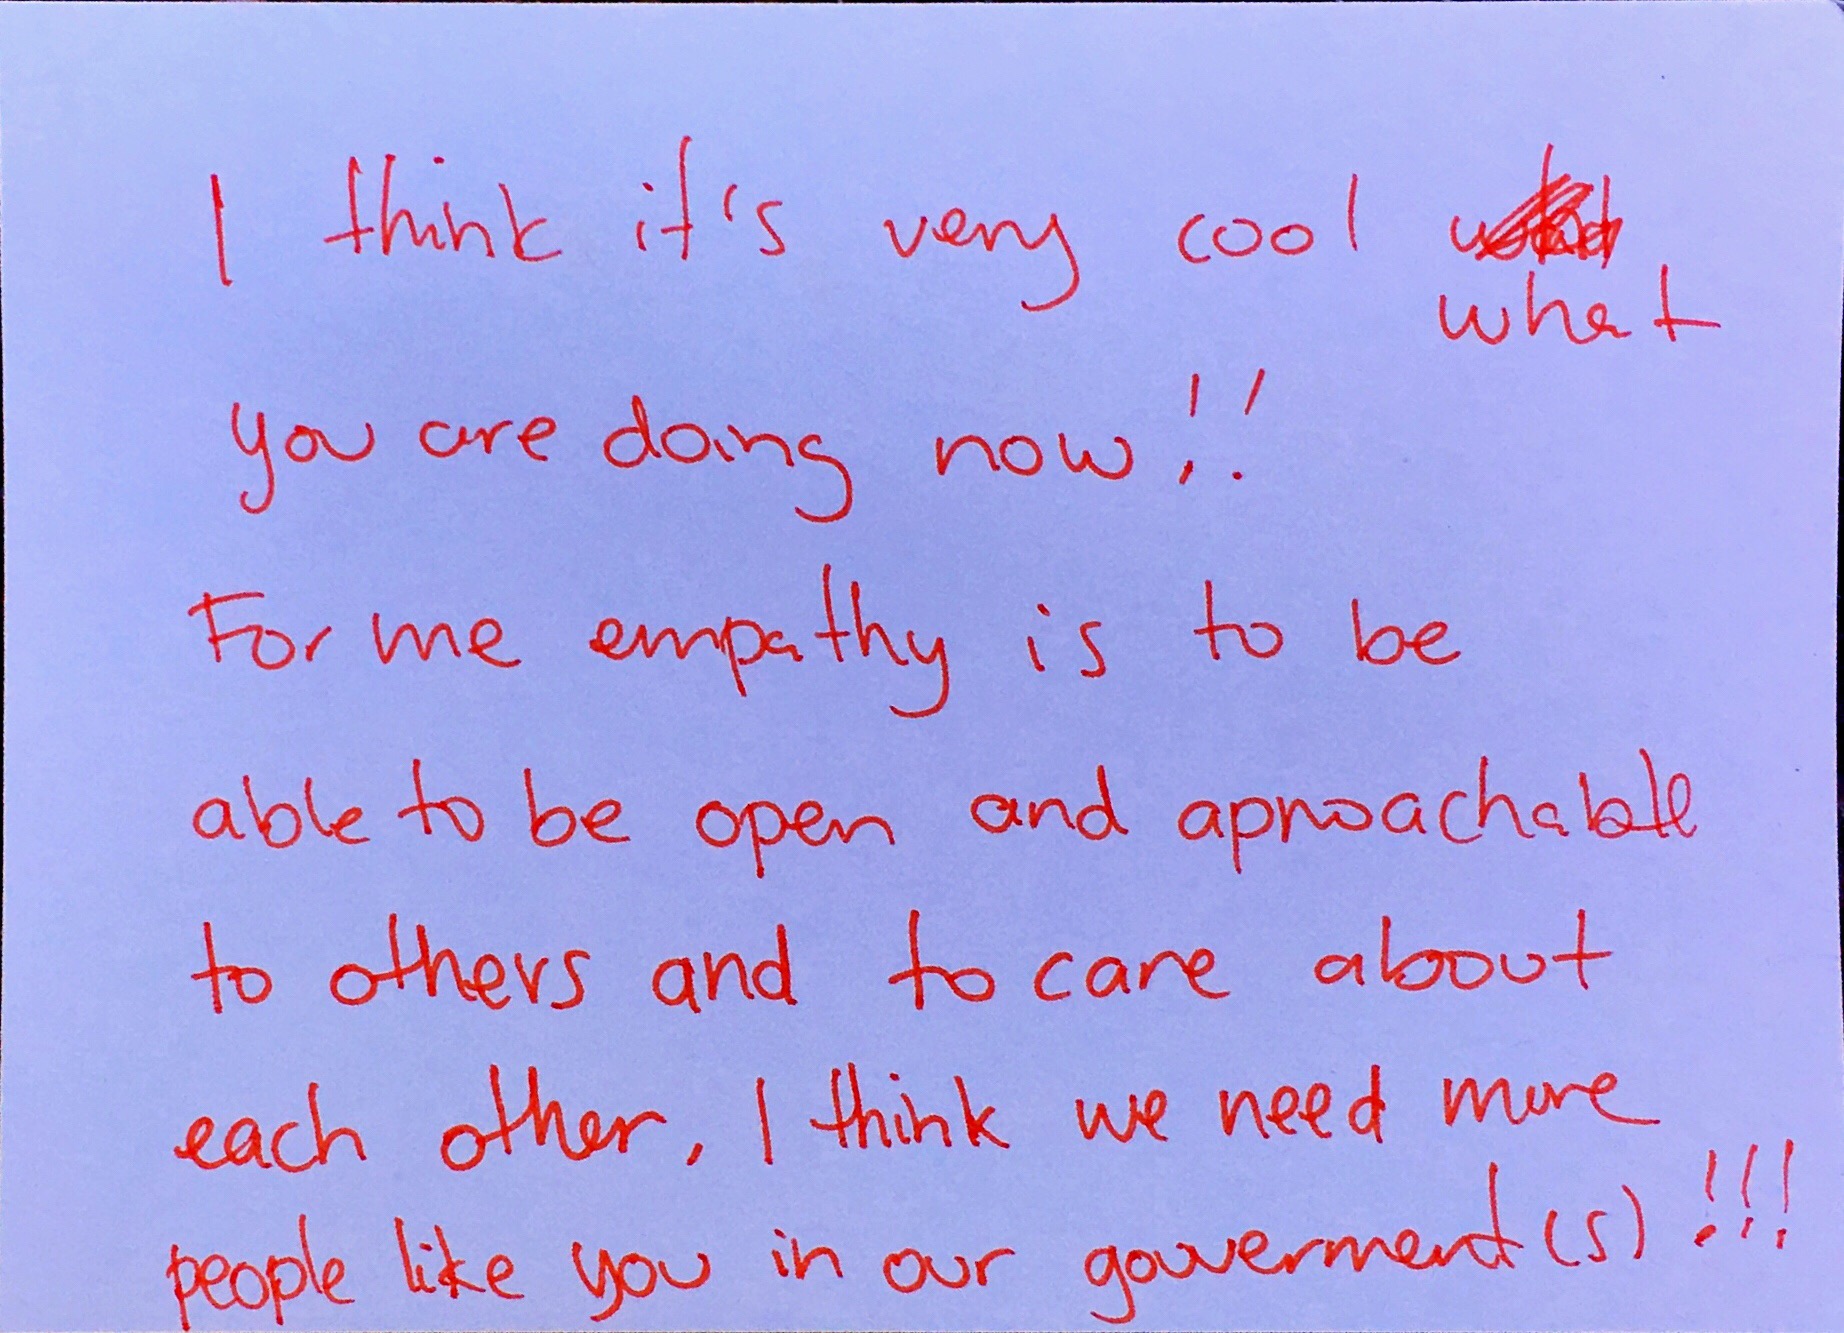 I think it's very cool
what
you are doing now!!
For me empathy is to be
able to be open and aproachable
to others and to care about
each other, I think we need more
people like you in our gouverment(s)!!!